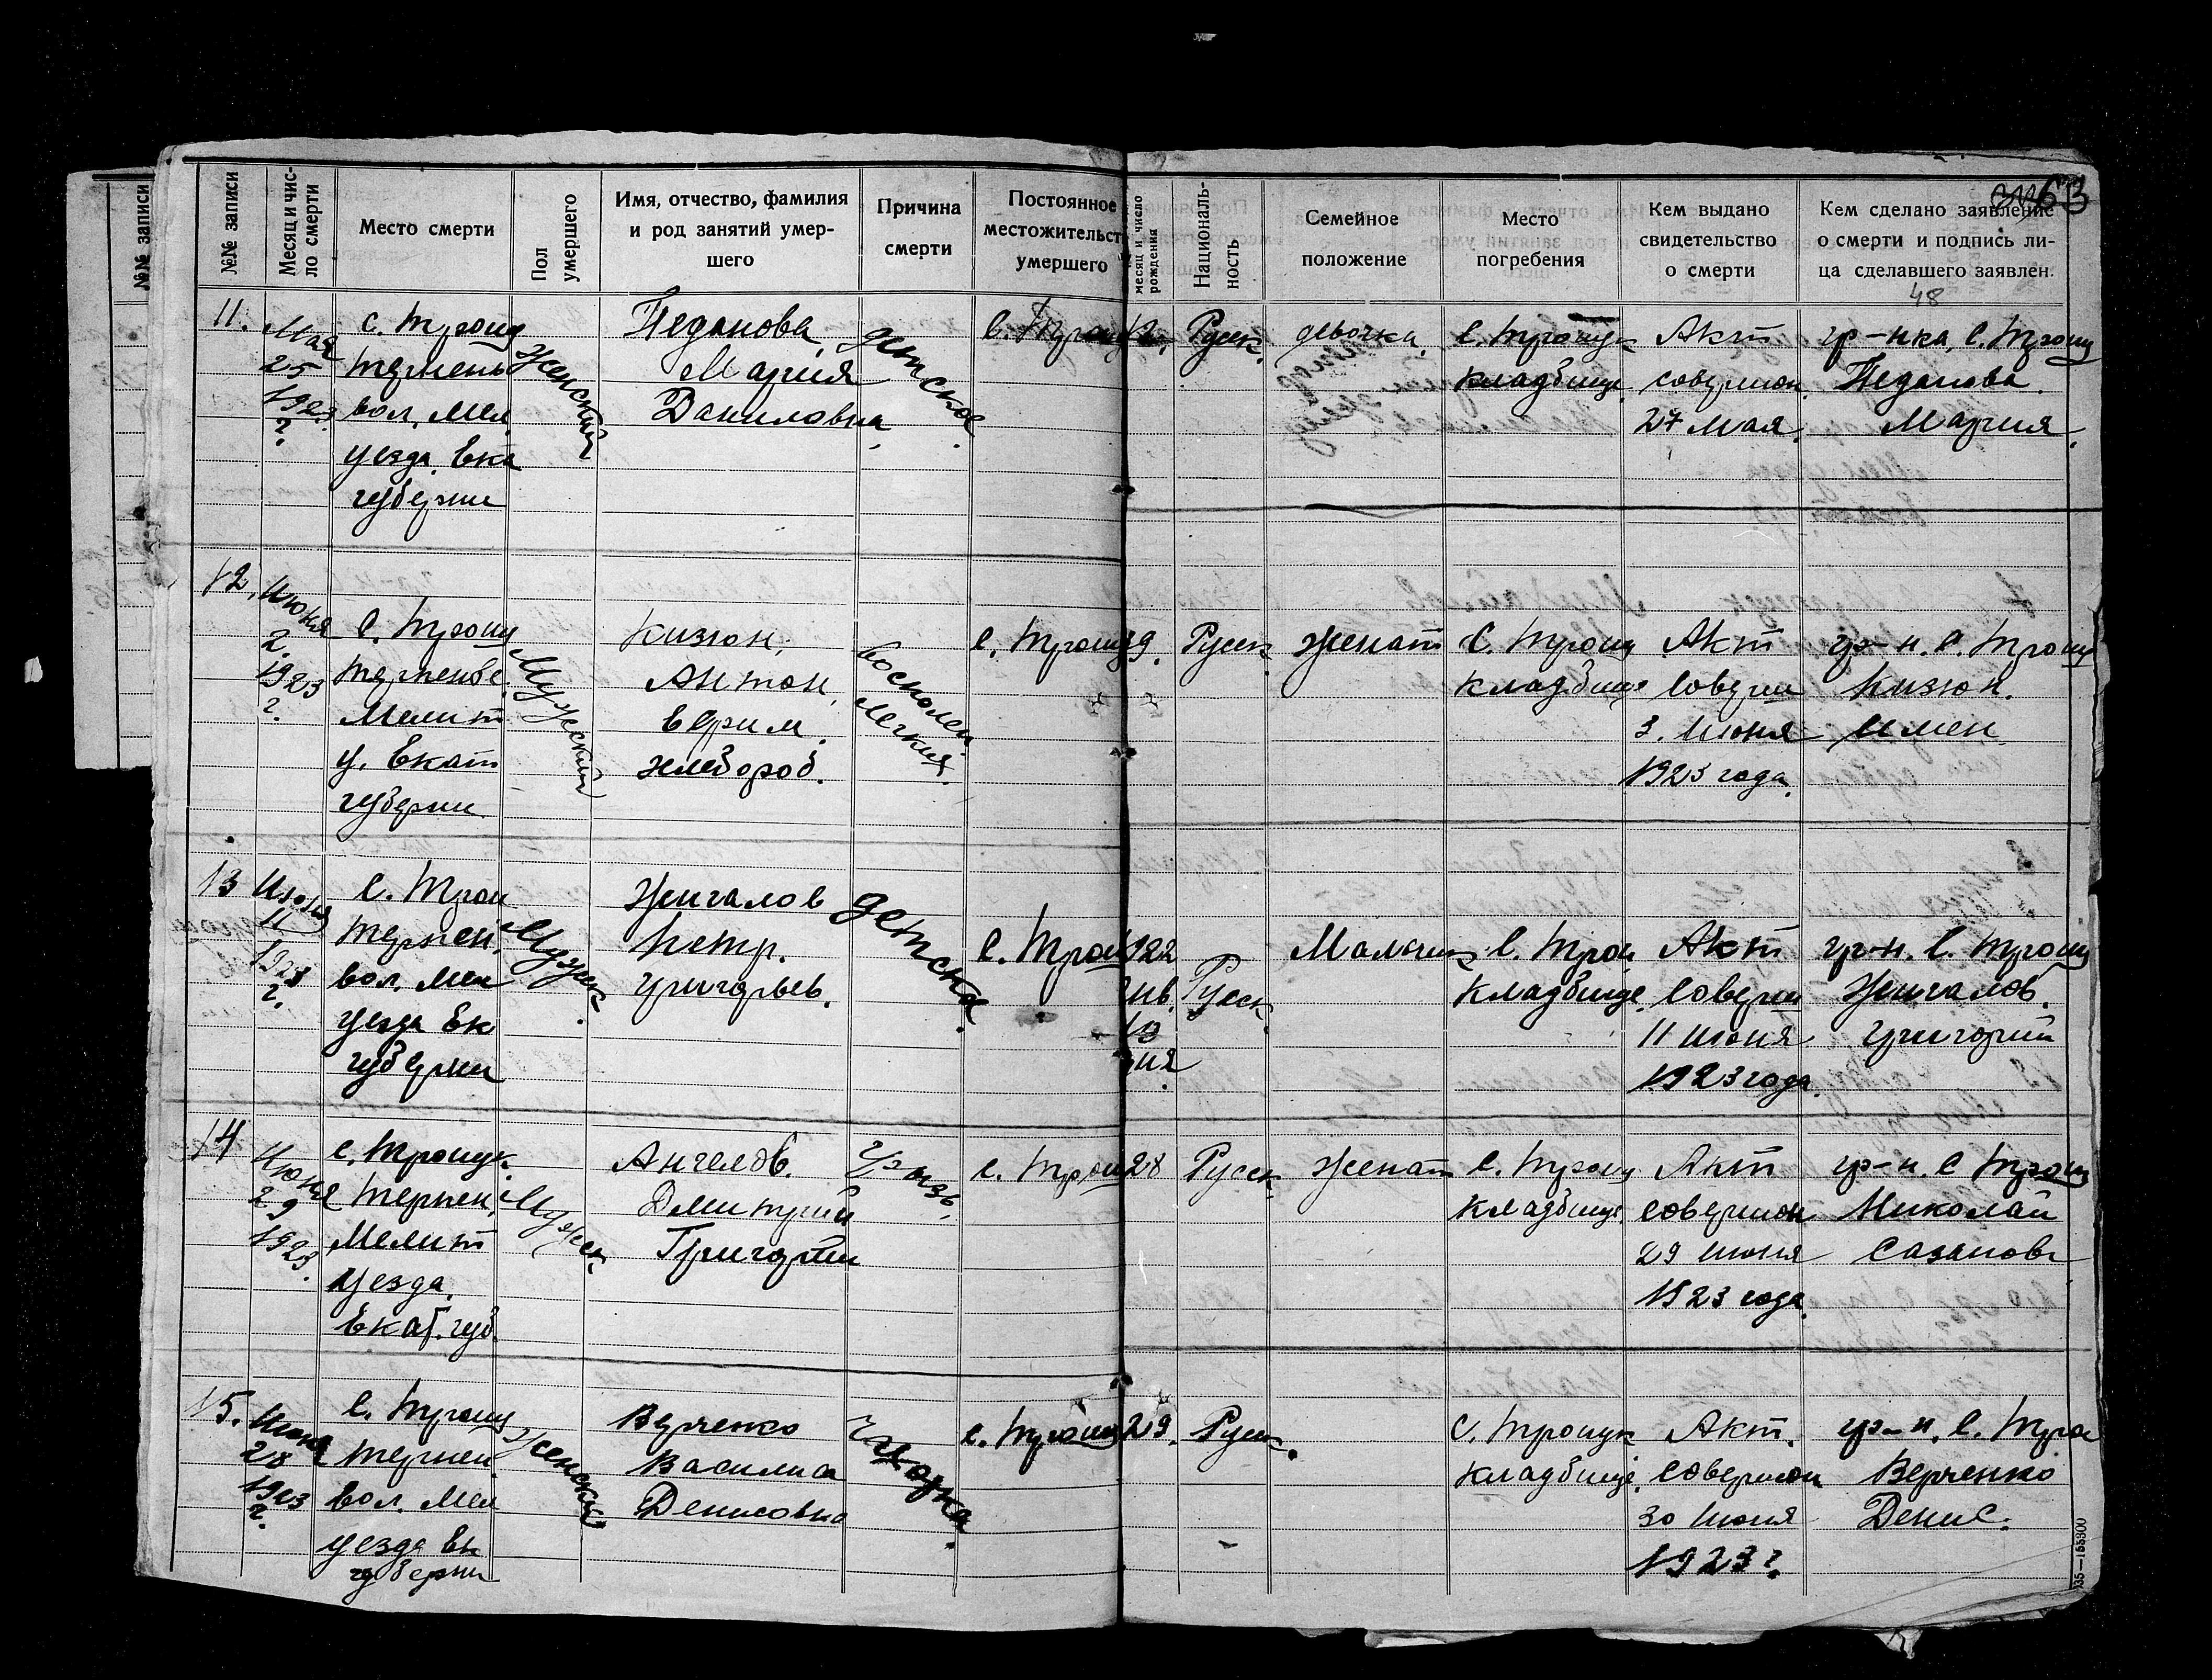 №№ записи
№№ записи
Месяц и чис-
ло смерти
Место смерти
Пол
умершего
Имя, отчество, фамилия
и род занятий умер-
шего
Причина
смерти
Постоянное
местожительст
умершего
месяц и число
рождения
Националь-
ность
Семейное
положение
Место
погребения
Кем выдано
свидетельство
о смерти
Кем сделано заявление
о смерти и подпись ли-
ца сделавшего заявлен.
63
48
11.
Мая
25
1923
г.
с. Троиц
Терпень
вол. Мел.
уезда Ека
губерни
Женский
Педанова
Мария
Даниловна
детское
С. Троиц
Русск.
девочка
С. Троицк
кладбище
Акт
совершон
27 мая.
гр-нка, С. Троиц
Педанова
Мария.
12.
Июня
2.
1923
г.
С. Троиц
Мелит
у. Екат
губерни
Мужский
Кизюн,
Антон
Ефим.
хлебороб.
воспален.
легких.
С. Троиц
39.
Русск
женат
С. Троиц
кладбище
Акт
соверш
3. июня
1923 года.
гр-н. С. Троиц
Кизюн.
13
Июня
11
1923
г.
С. Трои
Терпен,
вол. Мел
уезда Ек
губерни
Мужск.
Жигалов
Петр.
Григорьев.
детска.
С. Трои
1922
Русск.
Мальчик
С. Трои
кладбище
Акт
соверш
11 июня
1923 года.
гр-н. С. Троиц
Жигалов.
Григорий
14
Июня
29
1923.
с. Троицк.
Терпен.
Мелит
уезда.
Екат. губ.
Мужск
Ангелов.
Дмитрий
Григорий
грызь.
с. Трои
28
Русск.
женат
С. Троиц
кладбище.
Акт
совершон
29 июня
1923 года
гр-н. С Троиц
Николай
Сазанов
15.
Июня
28
1923
г.
С. Троиц
Терпен.
вол. Мел
уезда Ек
губерни
Женский
Верченко
Василиса
Денисовна
чихорка.
с. Троиц
29.
Русск.
С. Троицк
кладбище.
Акт.
совершон
30 июня
1923 г.
гр-н. С. Трои
Верченко
Денис.
35—155300